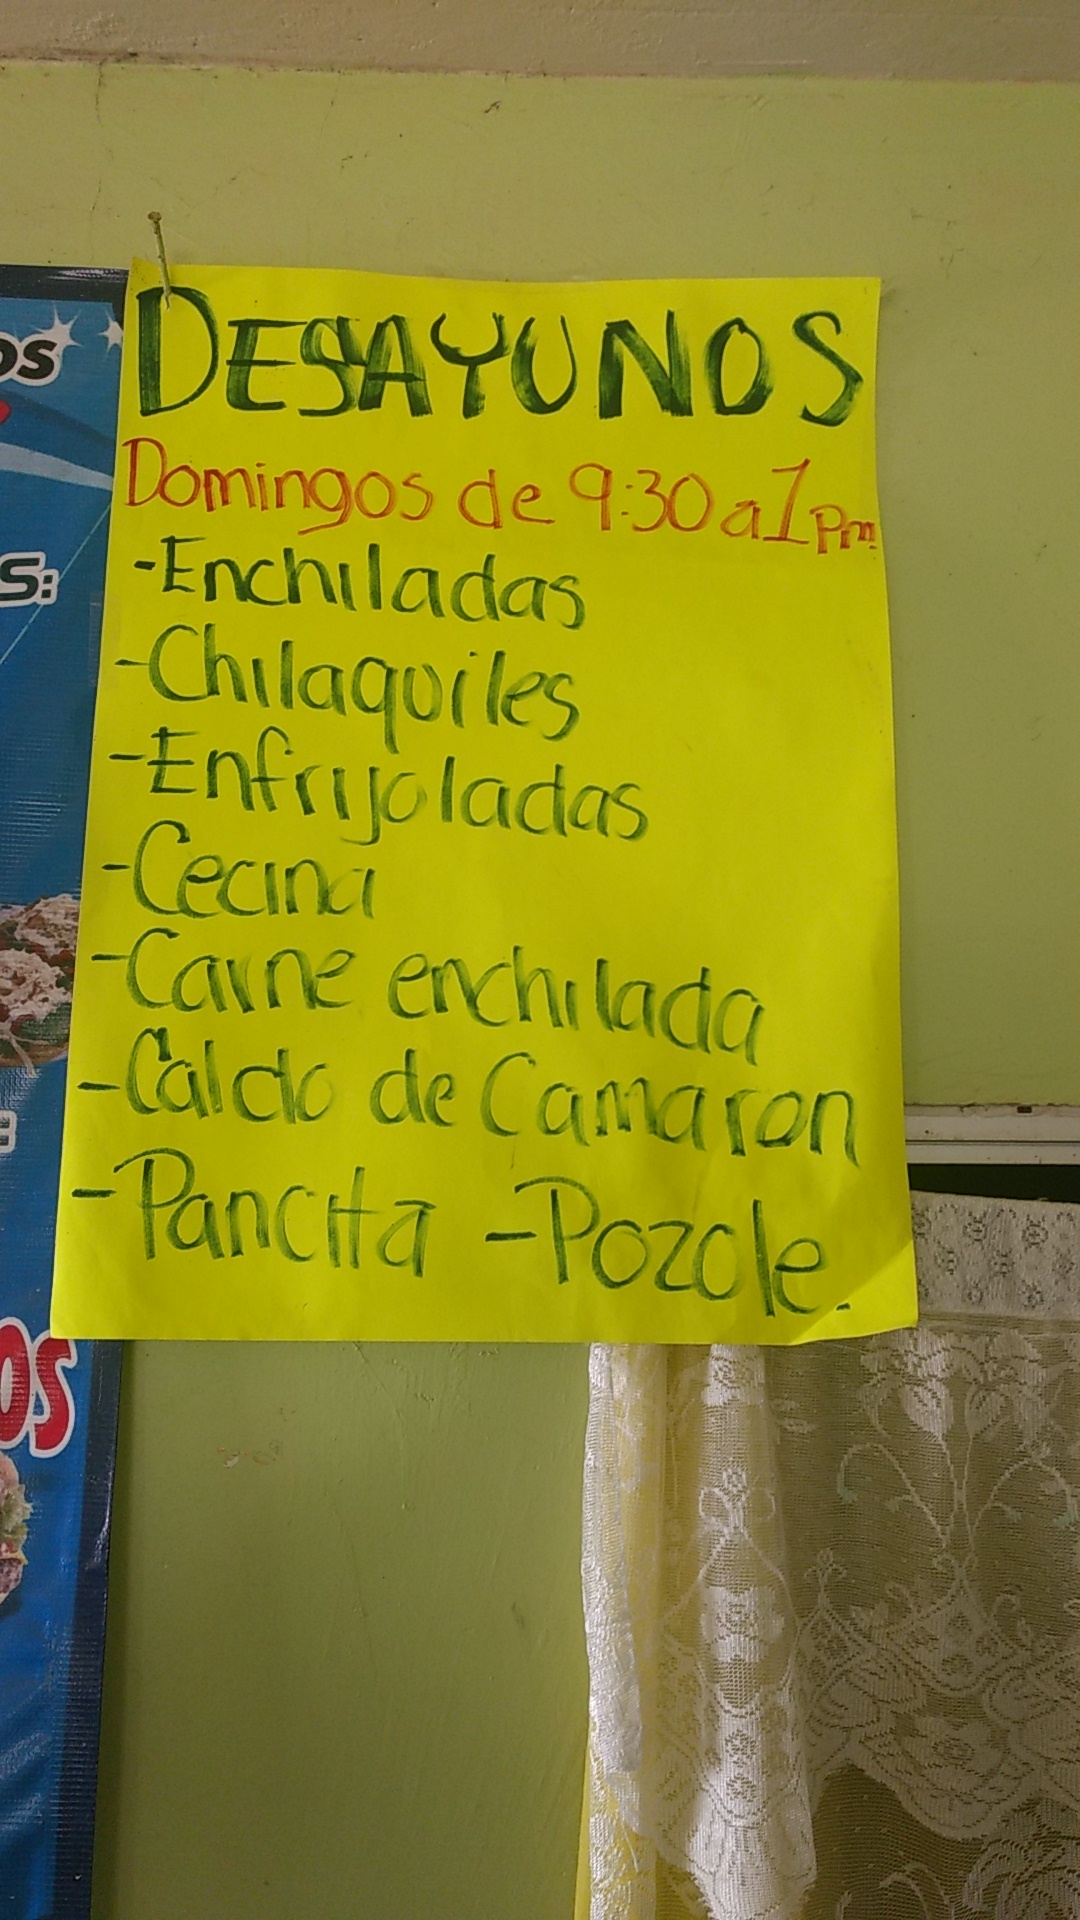 DESAYUNOS
Domingos de 9:30 a 1 Pm
-Enchiladas
-Chilaquiles
-Enfrijoladas
-Cecina
-Carne enchilada
-Caldo de Camaron
-Pancita -Pozole.
OS
S:
:
OS